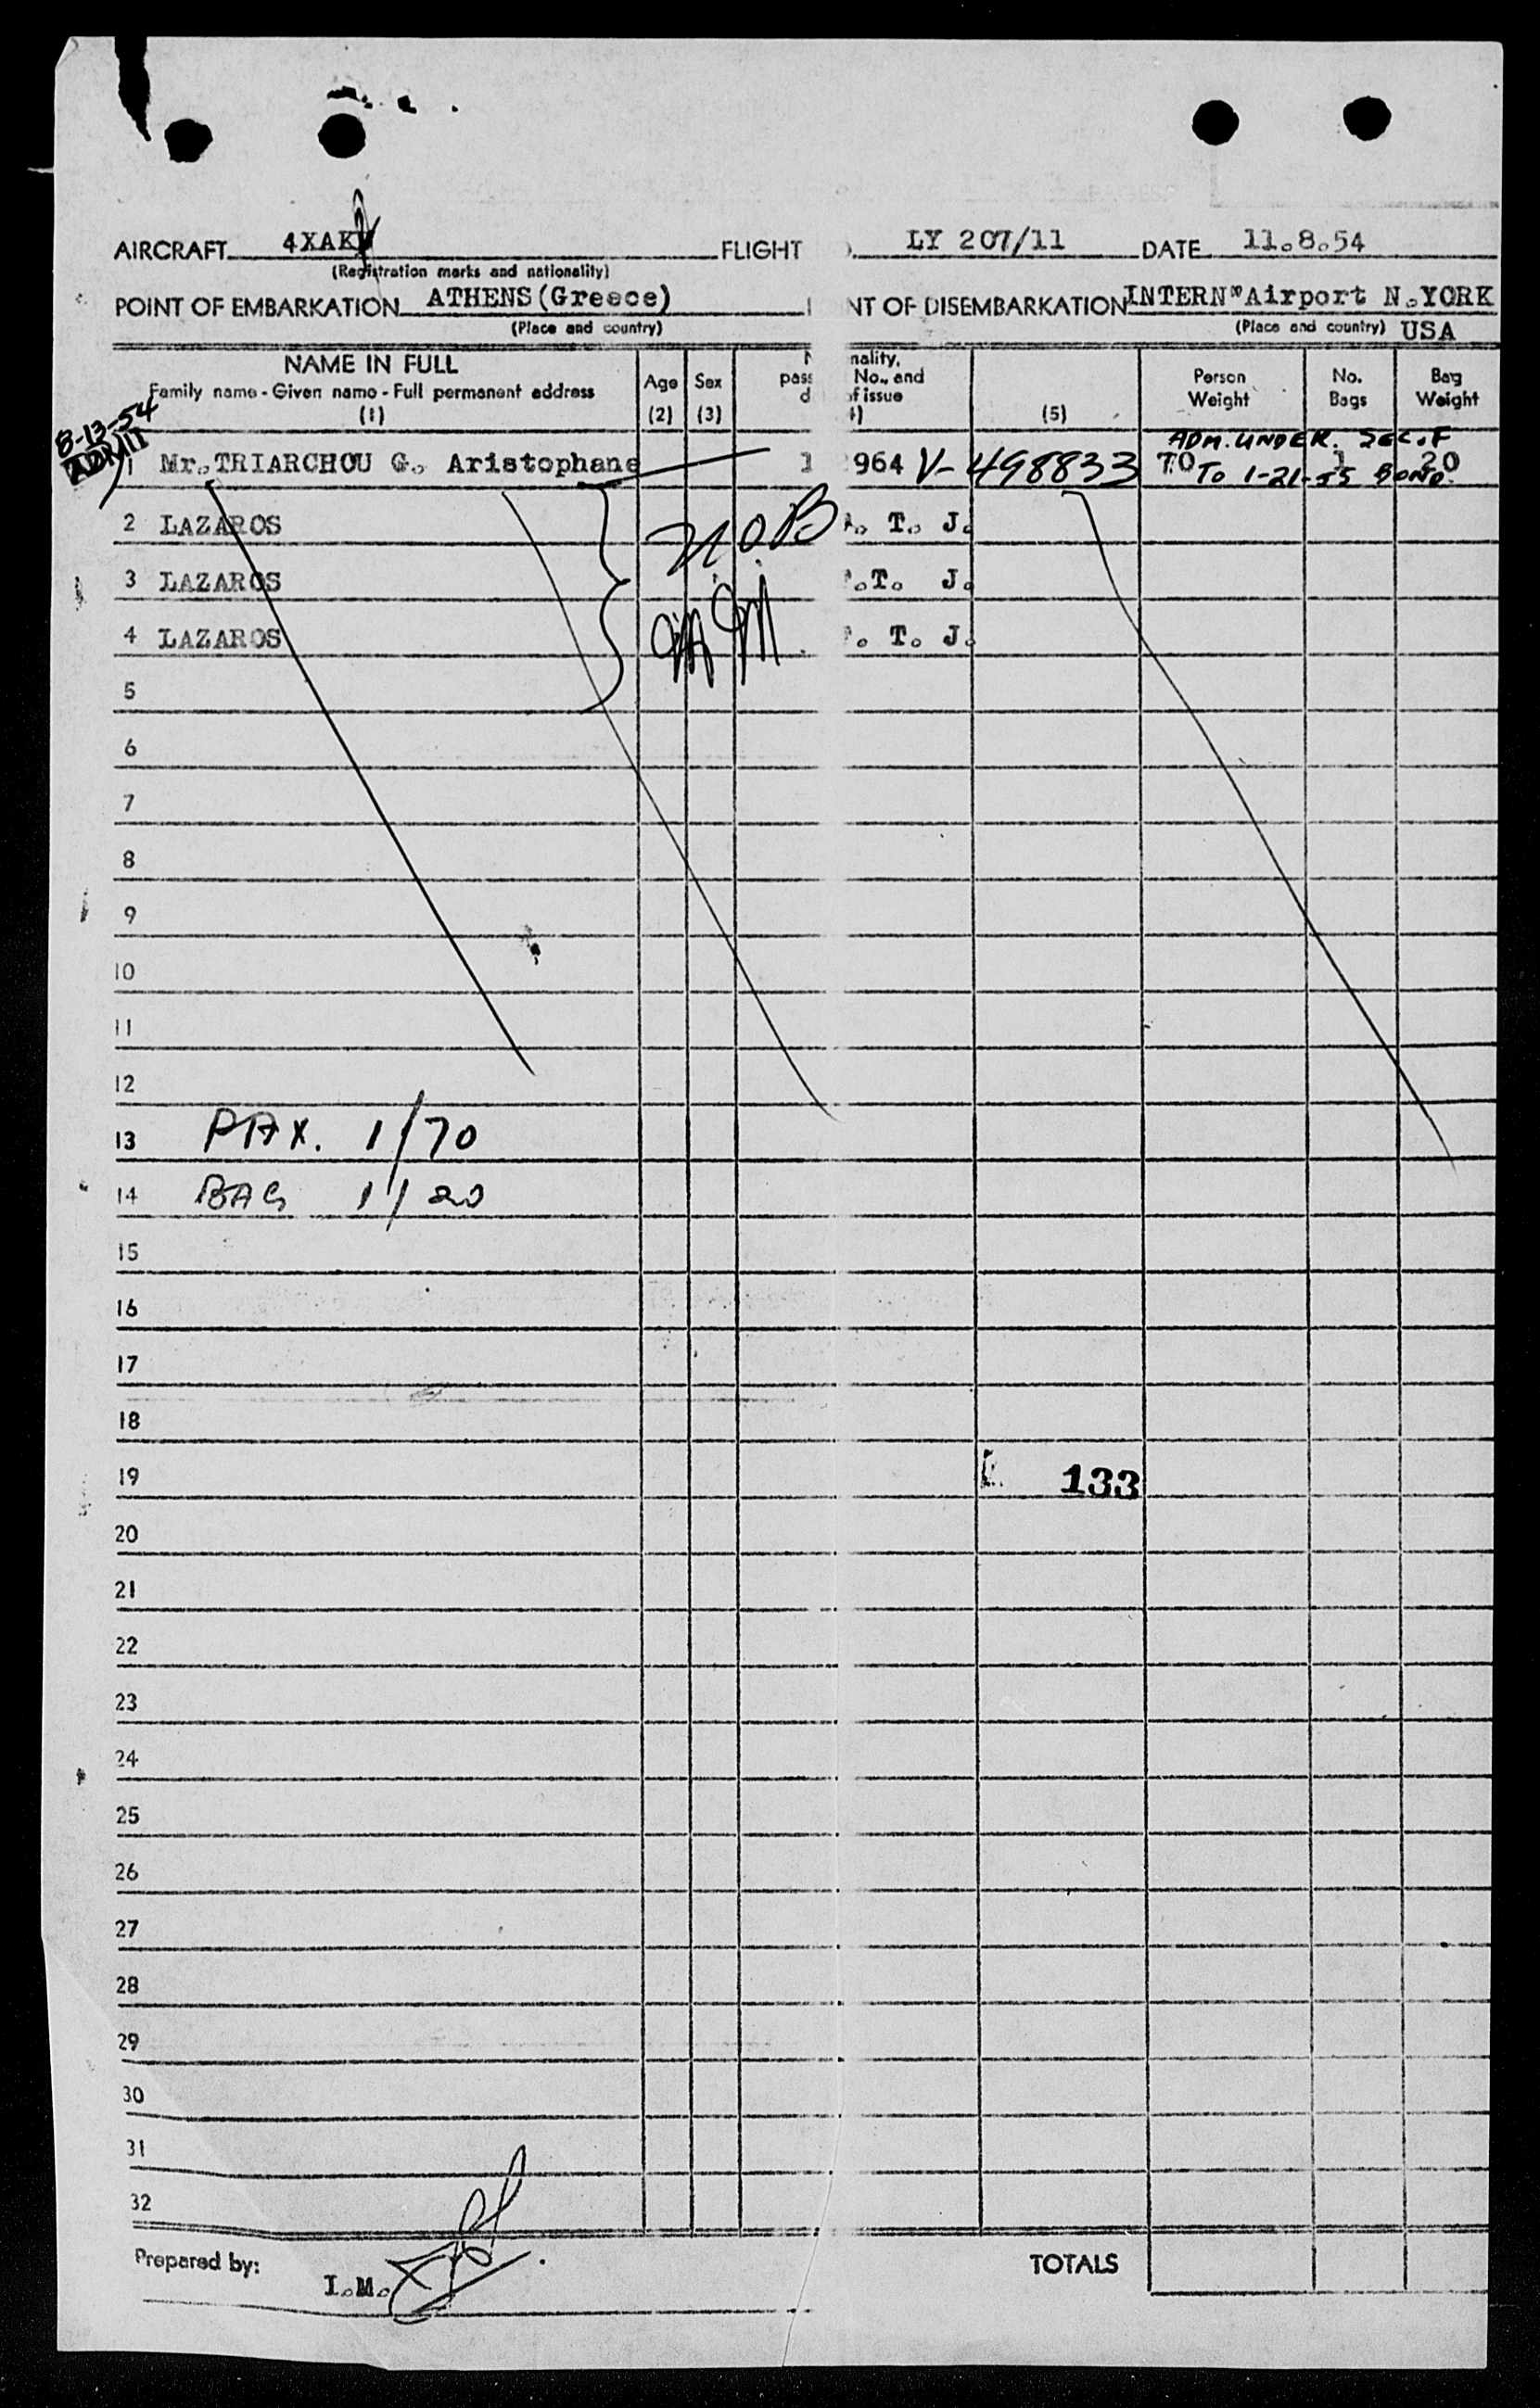 AIRCRAFT 4XAK FLIGHT LY 207/11 DATE 11.8.54
(Registration marks and nationality)
POINT OF EMBARKATION ATHENS(Greece) NT OF DISEMBARKATION INTERN" Airport N.YORK
(Place and country) (Place and country) USA
NAME IN FULL
Family name - Given name - Full permanent address
(1)
Age
(2)
Sex
(3)
nality,
pass No., and
d of issue
(5)
Person
Weight
No.
Bags
Bag
Weight
8-13-54
ADMIT
ADM. UNDER. SEC. F
1 Mr.TRIARCHOU G. Aristophane 1 964 V-498833 70 1 20
TO 1-21-55 BOND.
2 LAZAROS N.O.B . T. J.
3 LAZAROS .T. J.
4 LAZAROS . T. J.
5
6
7
8
9
10
11
12
13 PAX. 1/70
14 BAG 1/20
15
16
17
18
19 133
20
21
22
23
24
25
26
27
28
29
30
31
32
Prepared by: I.M. TOTALS